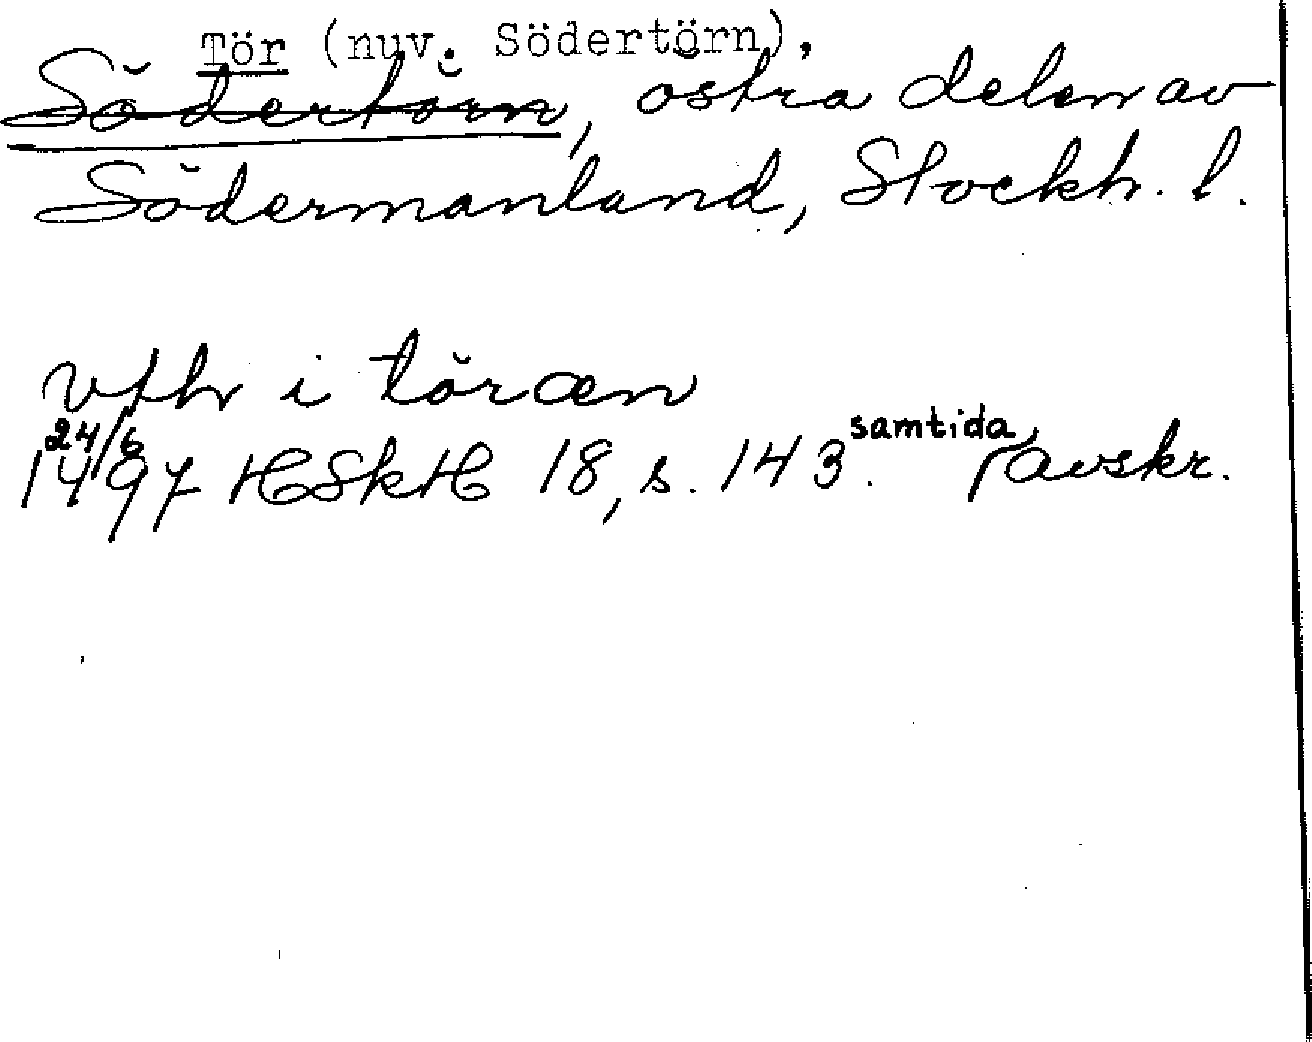 Tör (nuv. Södertörn),
Södertörn, östra delen av
Södermanland, Stockh. l.
vthr i töræn
24/6 samtida
1497 HSkH 18, s. 143. avskr.